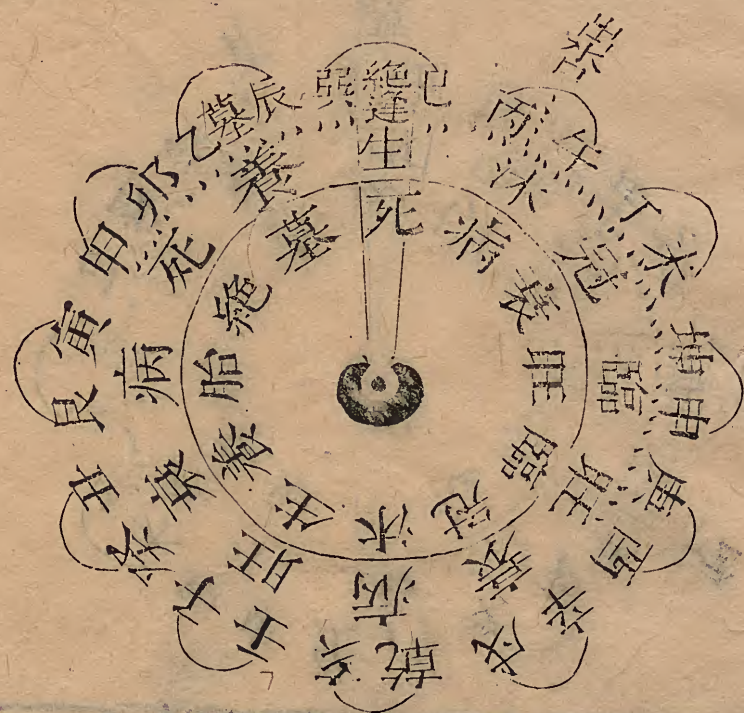 巽絕逢巳丙午丁未坤申庚酉辛戌乾亥壬子癸丑艮寅甲卯乙墓辰
生沐冠臨旺衰病旺衰病死養
死病衰旺臨冠沐生養胎絕墓